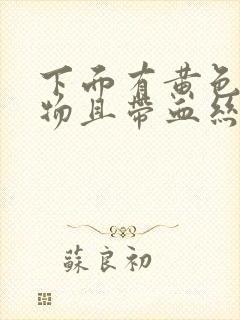 下而有黄色
物且带血絲
蘇良初